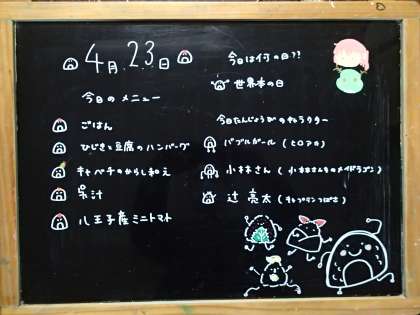 4月23日
今日のメニュー
ごはん
ひじきと豆腐のハンバーグ
キャベチのからし和え
呉汁
八王子産ミニトマト
今日は何の日??
世界本の日
今日たんじょうびのキャラクター
バブルガール(ヒロアカ)
小林さん(小林さんちのメイドラゴン)
辻 亮太(キャプテンつばさ)